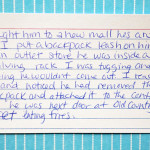 ght him to a new mall has an
I put a backpack leash on him
an outlet store he was inside a
lothing rack. I was tugging on
ng he wouldn't come out. I
and noticed he had removed the
ckpack and attached it to the
he was next door at Old Country
fet biting tires.